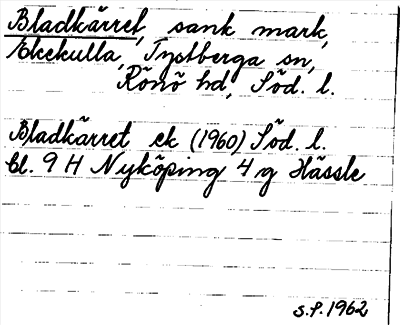 Bladkärret, sank mark,
Ekekulla, Tystberga sn,
Rönö hd, Söd. l.
Bladkärret ek (1960) Söd. l.
bl. 9 H Nyköping 4 g Hässle
s.f. 1962